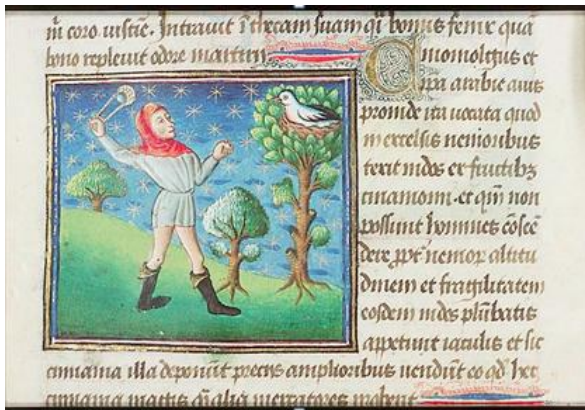 Intrauit ī thecam suam q̄ bonus fenix quā
bono repleuit odore martirii
Cinomolgus et
arabie auis
proinde ita uocata quod
in excelsis nemoribus
texit nidos ex fructibꝫ
cinamomi. et qm̄ non
possunt homines cōscē
dere ꝓpt̄ nemoꝝ altitu
dinem et fragilitatem
eosdem nidos plūbatis
appetunt iaculis et sic
cinnama illa deponūt preciis amplioribus uendūt eo qd̄ hec
cinnama magis q̄ alia mercatores